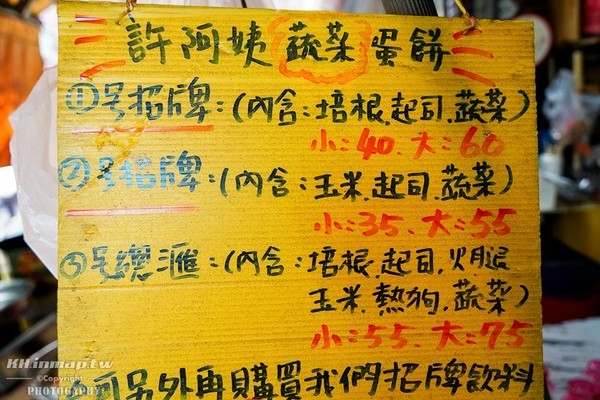 許阿姨蔬菜蛋餅
①号招牌:(內含:培根.起司.蔬菜)
小:40、大:60
②号招牌:(內含:玉米.起司.蔬菜)
小:35、大:55
③号總滙:(內含:培根.起司.火腿
玉米.熱狗.蔬菜)
小:55、大:75
可另外再購買我們招牌飲料
KH.inmap.tw
©Copyright
PHOTOGRAPHY